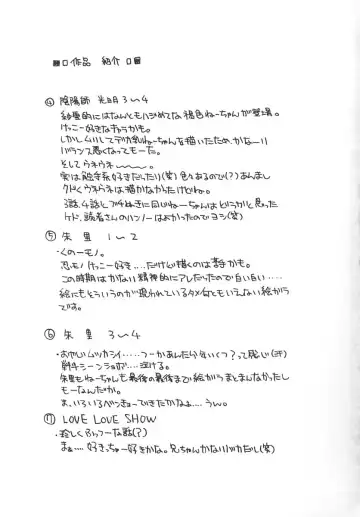 ■□作品 紹介 □■
④ 陰陽師 光明 3〜4
砂里的にはなんともハジめてな褐色ねーちゃんが登場。
けっこー好きなキャラかも。
しかしムリしてデカ乳ねーちゃんを描いたためか かなーり
バランス悪くなってもーた。
そして ウネウネ〜〜〜。
実は触手系好きだったり(笑) 色々あるので(?) あんまし
クドくウネウネは描かなかったけどね。
3話、4話とブチぬきに同じねーちゃんはどうかと思った
ケド、読者さんのハンノーはよかったのでヨシ(笑)
⑤ 朱里 1〜2
・くのーモノ。
忍モノけっこー好き....だけど描くのは苦手かも。
この時期はかなり精神的にアレだったので白い白い....
絵にもそういうのが現われているタメ 何ともいえない絵から
です。
⑥ 朱里 3〜4
・おやじいムツカシイ....つーかあんた分年いくつ?って感じ(汗)
戦斗シーンショボ.... 泣ける。
朱里もねーちゃんも最後の最後まで絵がうまとまんなかったし
もーなんだか。
ま、いろいろべんきょーできたかなよ....うん。
⑦ LOVE LOVE SHOW
・珍しくふっつーな話(?)
まぁ.... 好きっちゃー好きかな。兄ちゃんかなりバカだし(笑)